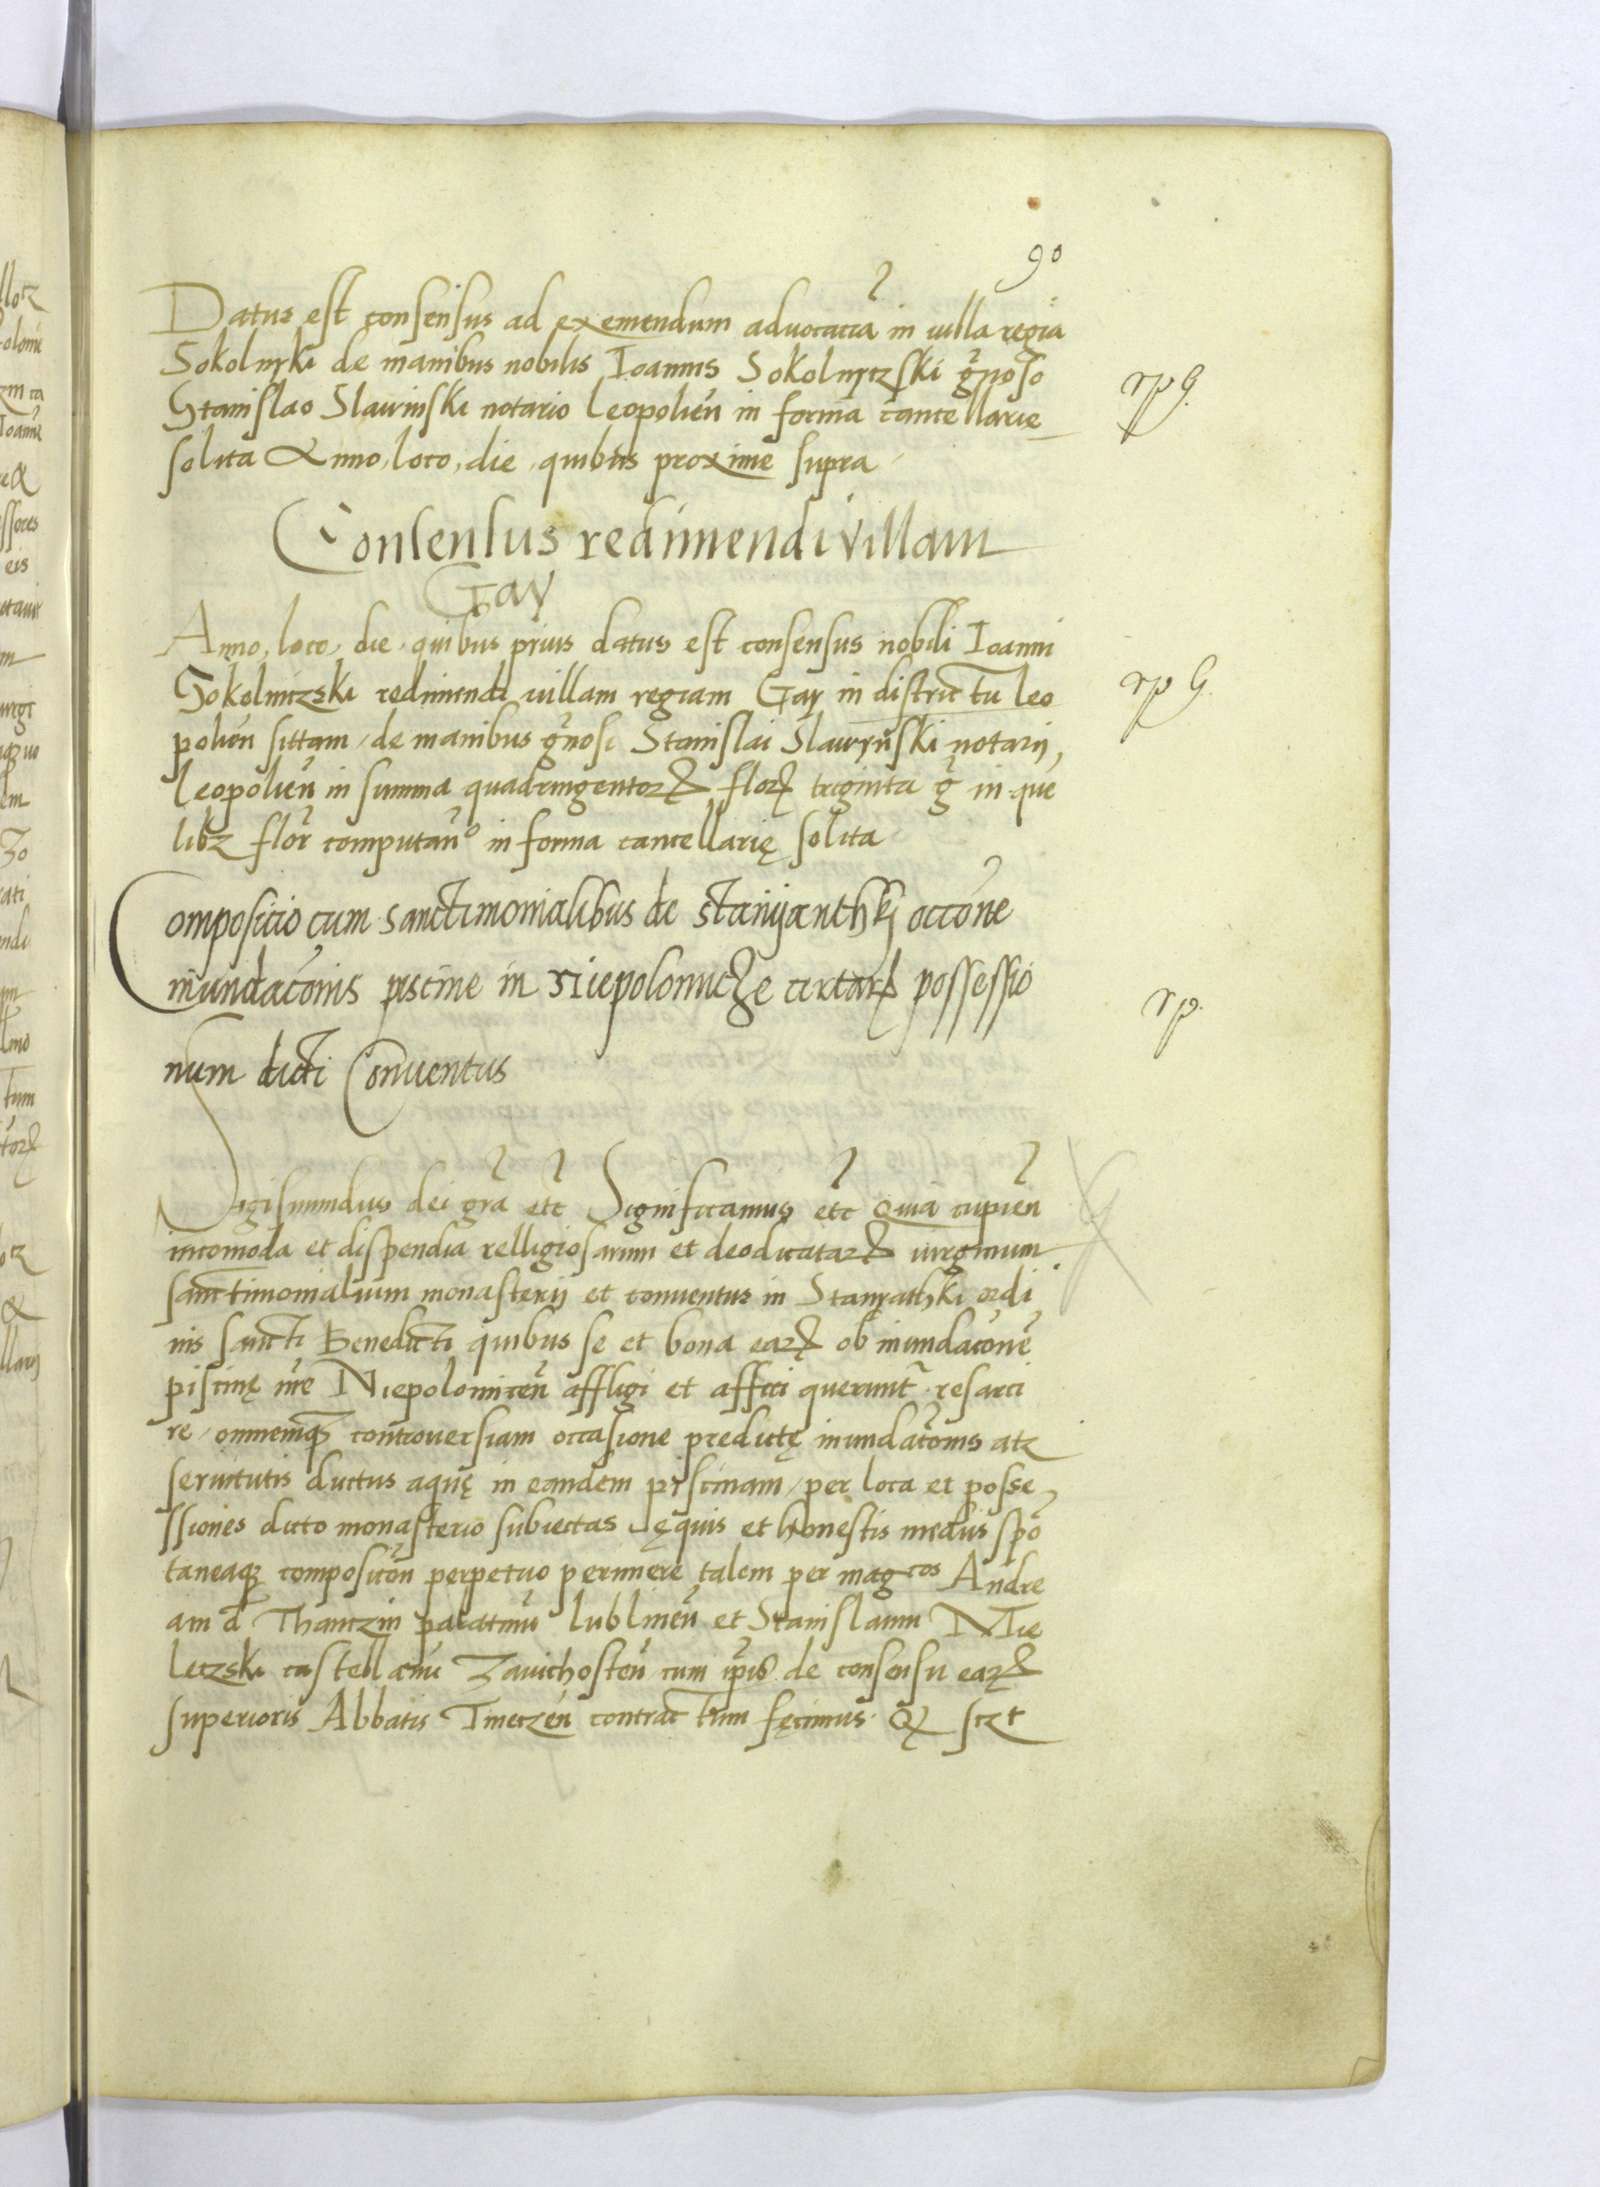 90
Datus est consensus ad exemendum aduocatiã in uilla regia
Sokolnyki de manibus nobilis Ioannis Sokolnyczski gñoso
Stanislao Slawinski notario leopolień in forma cancellarie
solita Anno, loco, die, quibus proxime supra
rp G.
Consensus redimendi villam
Gay
Anno, loco, die, quibus prius datus est consensus nobili Ioanni
Sokolniczski redimendi uillam regiam Gay in districtu leo
polień sittam, de manibus gñosi Stanislai Slawynski notarij,
leopolień in summa quadringentorꝝ florꝝ triginta g̃ in que
libꝫ flor̃ computań° in forma cancellarię solita
rp G.
Compositio cum sanctimonialibus de Stanijanthkj occõne
inundacõnis piscine in Niepolomicze certarꝝ possessio
num dicti Conuentus
rp.
Sigismundus dei grã etc̃ Significamus etc̃ Quia cupień
incomoda et dispendia relligiosarum et deodicatarꝝ uirginum
sanctimonialium monasterij et conuentus in Stanyathki ordi
nis sancti Benedicti quibus se et bona earꝝ ob inundacõnẽ
piscinę nr̃e Niepolomiceń affligi et affici querunt̃ resarci
re, omnemqꝫ controuersiam occasione predictę inundacõnis atqꝫ
seruitutis ductus aquę in eandem piscinam, per loca et posse
ssiones dicto monasterio subiectas ęquis et honestis medijs spõ
taneaqꝫ composicõn perpetuo perimere talem per mag cos Andre
am d̃ Thanczin palatinũ lublineń et Stanislaum Mie
leczski castellanũ Zauichosteń cum ip̃is de consensu earꝝ
superioris Abbatis Tineczeń contractum fęcimus. Qꝫ sczt